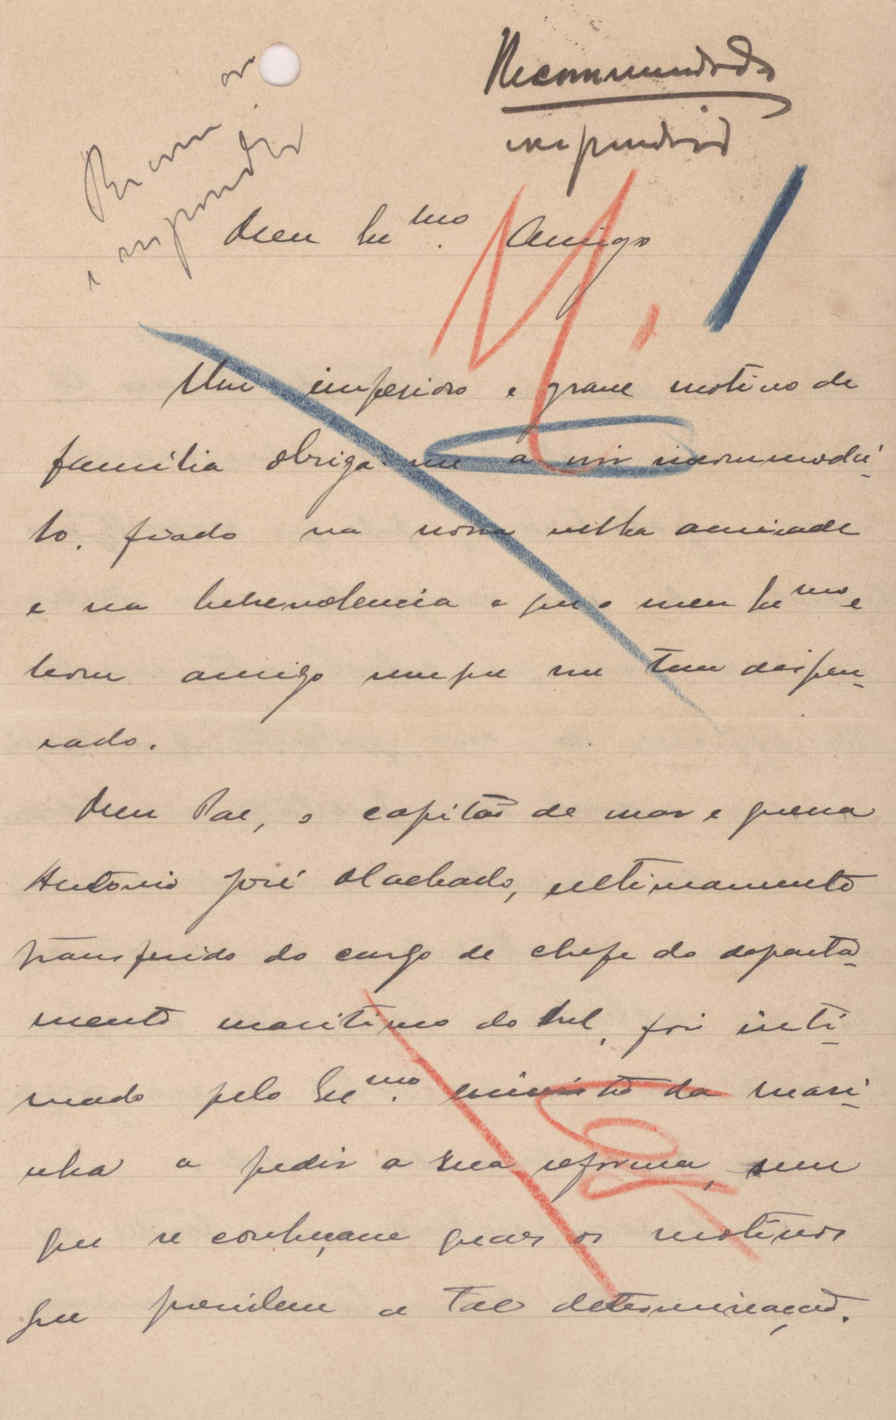 Recommendado
respondido
e respondido
Meu Exmo. Amigo
M. 1
Um imperioso e grave motivo de
familia obriga-me a vir incommodá-
lo, fiado na nossa velha amizade
e na benevolencia que o meu Exmo e
bom amigo sempre me tem dispen-
sado.
Meu Pae, o capitão de mar e guerra
Antonio José Machado, ultimamente
transferido do cargo de chefe do departa-
mento maritimo do Sul, foi inti-
mado pelo Exmo. ministro da mari-
nha a pedir a sua reforma, sem
que se conheçam quaes os motivos
que presidem a tal determinação.